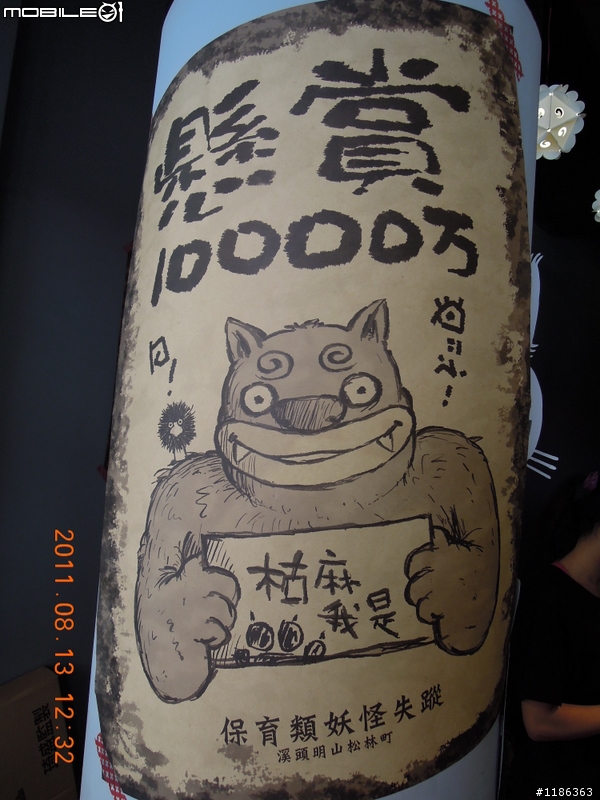 MOBILE01
懸賞
10000万
枯麻
我是
保育類妖怪失蹤
溪頭明山松林町
2011.08.13 12:32
#1186363